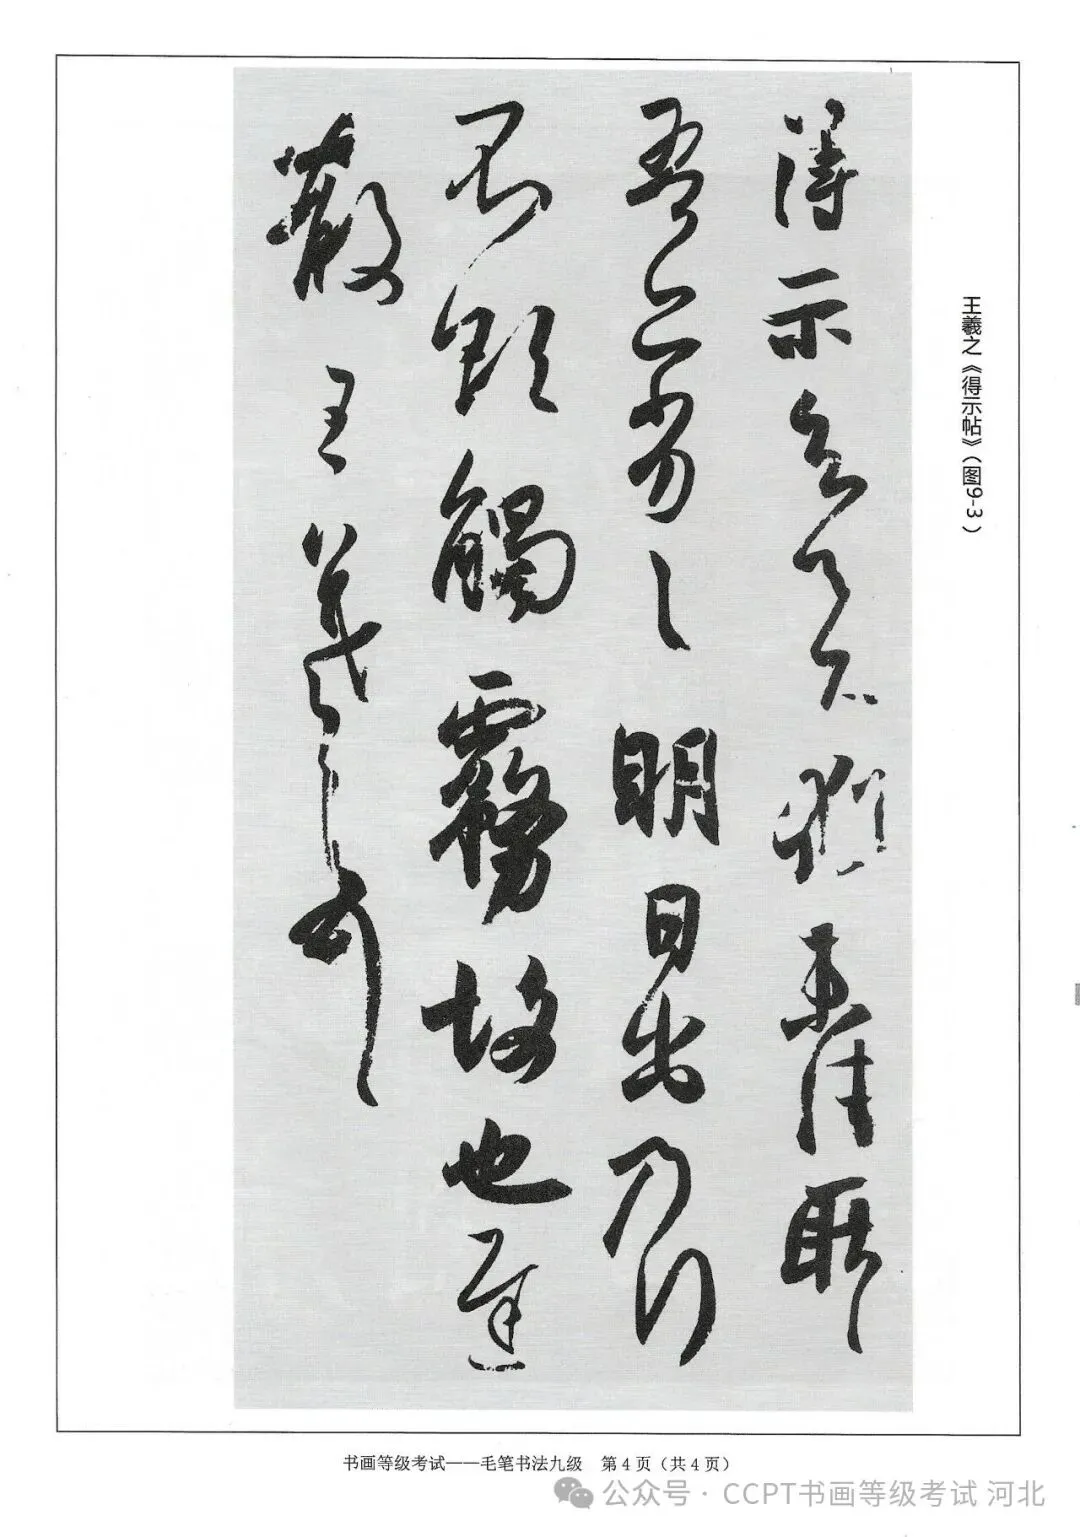 得示知足下猶未佳耶
吾亦劣劣明日出乃行
不欲觸霧故也遲
散王羲之頓首
王羲之《得示帖》（图9-3）
书画等级考试——毛笔书法九级 第4页（共4页）
公众号·CCPT书画等级考试 河北